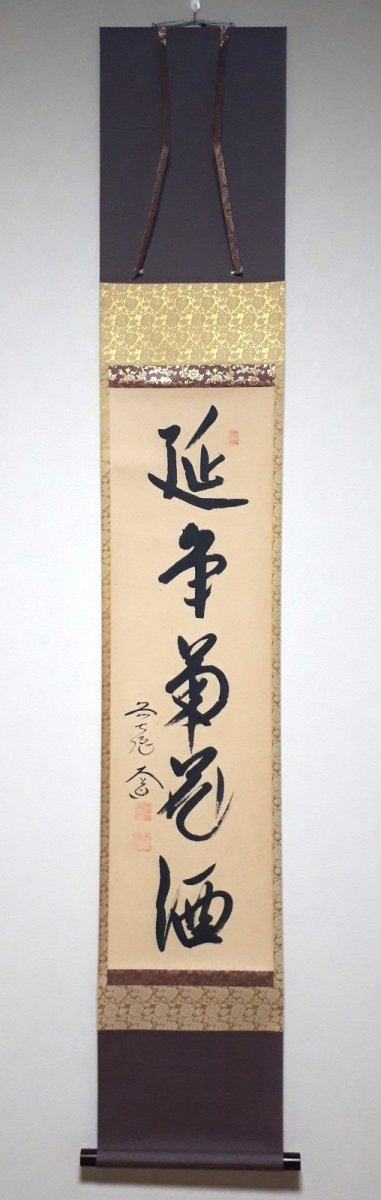 延年菊花酒